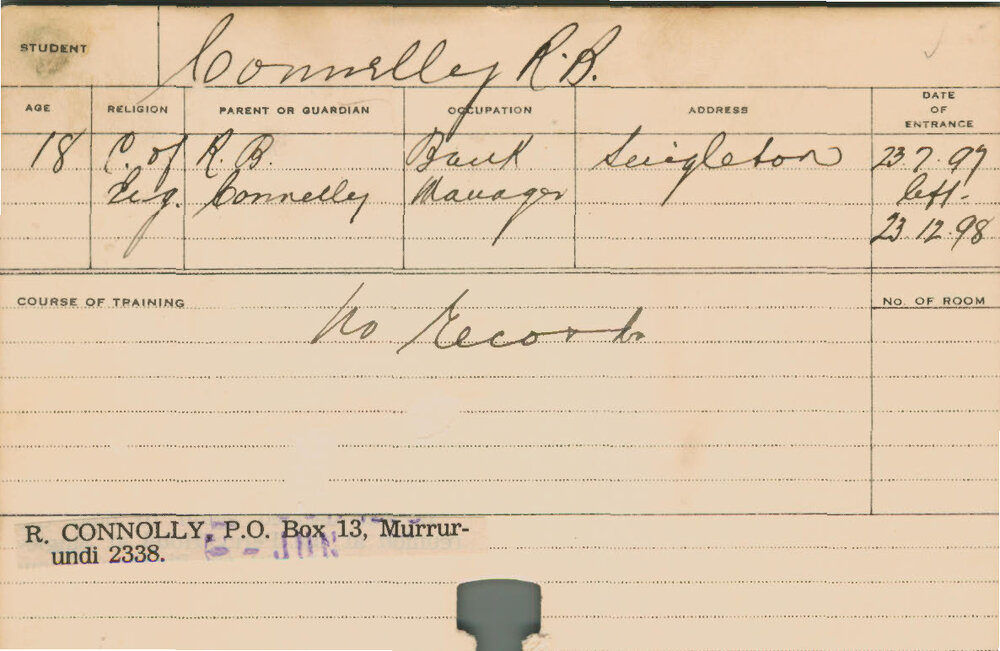 STUDENT Connelly R.B.
AGE RELIGION PARENT OR GUARDIAN OCCUPATION ADDRESS DATE OF ENTRANCE
18 C. of R. B. Bank Singleton 23.7.97
Eng. Connelly Manager left.
23.12.98
COURSE OF TRAINING No Records No. OF ROOM
R. CONNOLLY, P.O. Box 13, Murrur-
undi 2338.
JUN